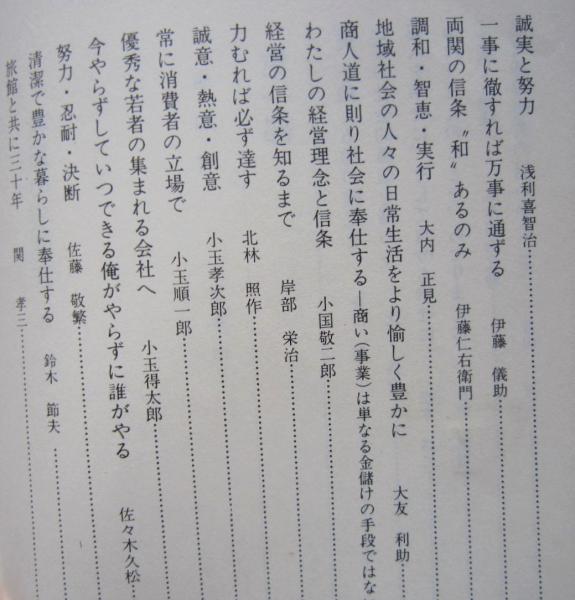 誠実と努力　浅利喜智治
一事に徹すれば万事に通ずる　伊藤　儀助
両関の信条〝和〟あるのみ　伊藤仁右衛門
調和・智恵・実行　大内　正見
地域社会の人々の日常生活をより愉しく豊かに　大友　利助
商人道に則り社会に奉仕する―商い（事業）は単なる金儲けの手段ではな
わたしの経営理念と信条　小国敬二郎
経営の信条を知るまで　岸部　栄治
力むれば必ず達す　北林　照作
誠意・熱意・創意　小玉孝次郎
常に消費者の立場で　小玉順一郎
優秀な若者の集まれる会社へ　小玉得太郎
今やらずしていつできる俺がやらずに誰がやる　佐々木久松
努力・忍耐・決断　佐藤　敬繁
清潔で豊かな暮らしに奉仕する　鈴木　節夫
旅館と共に三十年　関　孝三